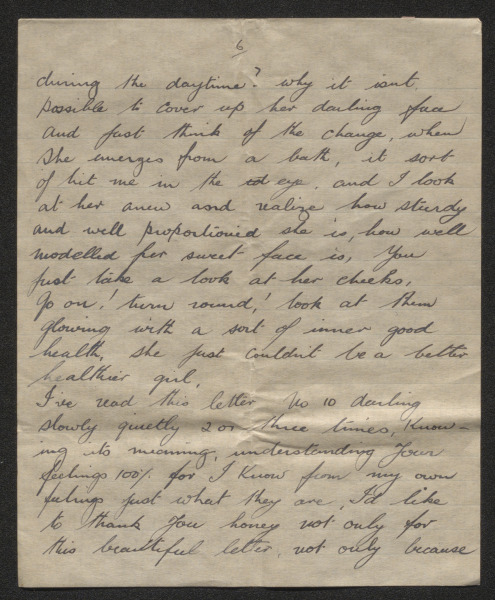 6
during the daytime? why it isnt
possible to cover up her darling face
and just think of the change, when
she emerges from a bath, it sort
of hit me in the eye. and I look
at her anew and realize how sturdy
and well proportioned she is, how well
modelled her sweet face is, You
just take a look at her cheeks.
Go on! turn round! look at them
glowing with a sort of inner good
health, she just couldn't be a better
healthier girl.
I've read this letter No 10 darling
slowly quietly 2 or three times, Know-
ing its meaning, understanding Your
feelings 100% for I know from my own
feelings just what they are, I'd like
to thank You honey not only for
this beautiful letter, not only because